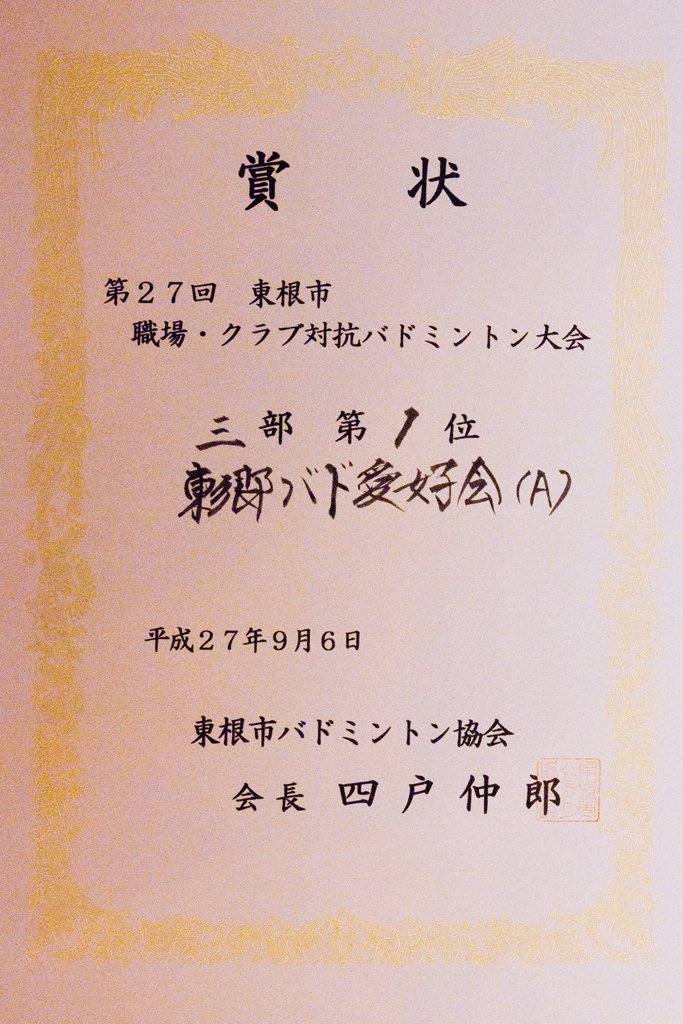 賞 状
第27回 東根市
職場・クラブ対抗バドミントン大会
三部 第1位
東郷バド愛好会(A)
平成27年9月6日
東根市バドミントン協会
会長 四戸仲郎